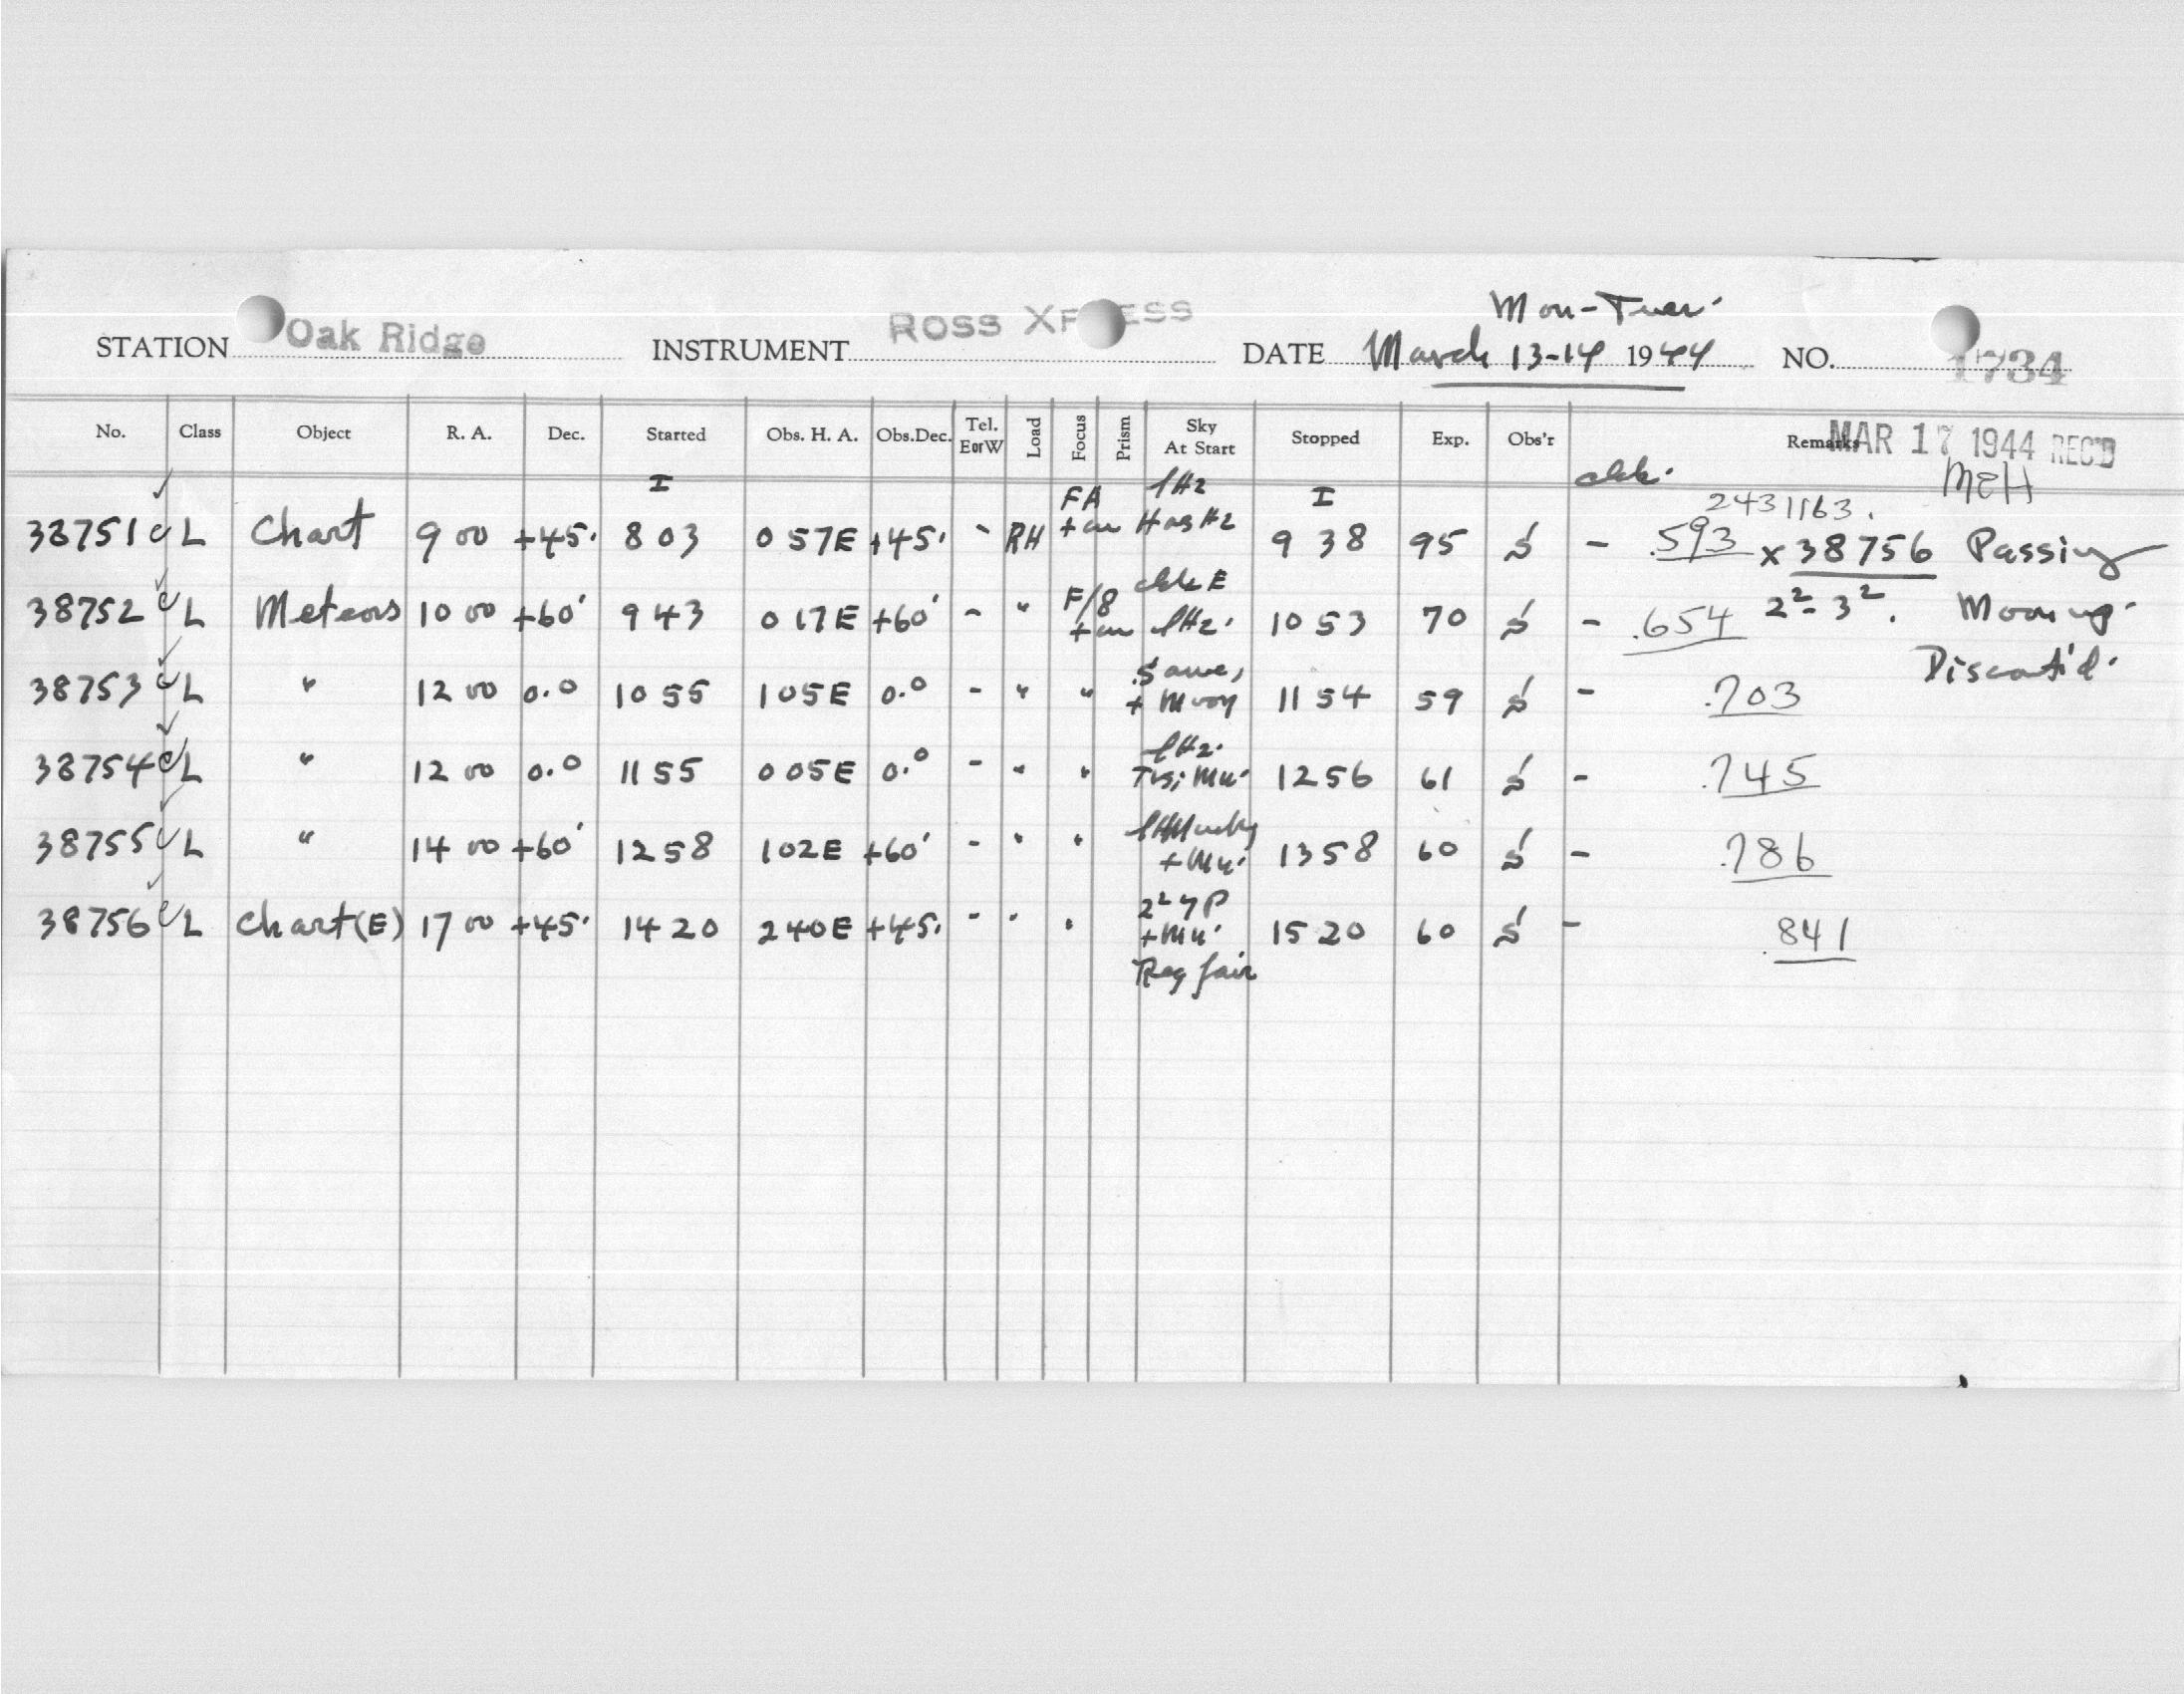 Mon-Tues.
STATION Oak Ridge INSTRUMENT ROSS XPRESS DATE March 13-14 1944 NO. 1734
No. Class Object R. A. Dec. Started Obs. H. A. Obs.Dec. Tel. E or W Load Focus Prism Sky At Start Stopped Exp. Obs'r Remarks MAR 17 1944 REC'D
MEH
2431163.
38751 c L Chart 9 00 +45. 8 03 0 57E +45. - RH FA 9 38 95 - .593 x 38756 Passing
38752 c L Meteors 10 00 +60' 9 43 0 17E +60' - " F/8 10 53 70 - .654 2²-3². Moon up.
Discont'd.
38753 c L " 12 00 0.0 10 55 1 05E 0.0 - " " Same, + Moon 11 54 59 - .703
38754 c L " 12 00 0.0 11 55 0 05E 0.0 - " " 12 56 61 - .745
38755 c L " 14 00 +60' 12 58 1 02E +60' - " " 13 58 60 - .786
38756 c L Chart(E) 17 00 +45. 14 20 2 40E +45. - " " 15 20 60 - .841
Reg fair